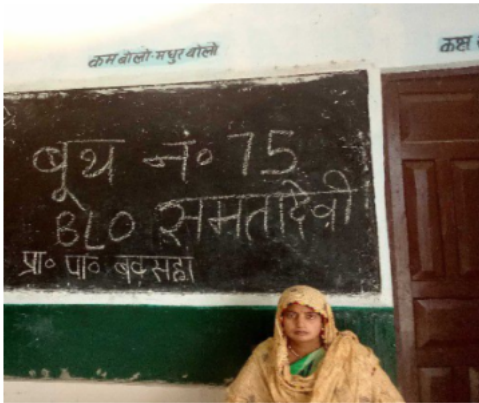 कम बोलो-मधुर बोलो
कक्ष
बूथ नं० 75
BLO समतादेवी
प्रा० पा० बक्सहा